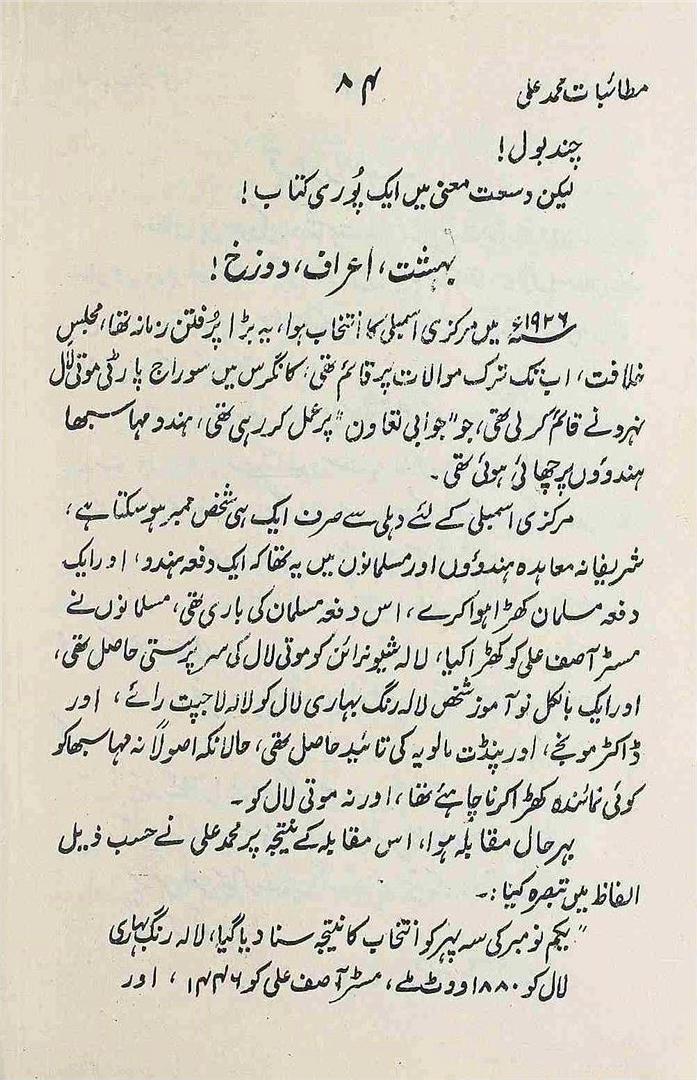 مطائبات محمد علی ۸۴
چند بول!
لیکن وسعت معنی میں ایک پُوری کتاب!
بہشت، اعراف، دوزخ!
۱۹۲۶ء میں مرکزی اسمبلی کا انتخاب ہوا، یہ بڑا پُرفتن زمانہ تھا، مجلسِ
خلافت، اب تک ترک موالات پر قائم تھی، کانگرس میں سوراج پارٹی موتی لال
نہرو نے قائم کر لی تھی، جو "جوابی تعاون" پر عمل کر رہی تھی، ہندو مہاسبھا
ہندوؤں پر چھائی ہوئی تھی۔
مرکزی اسمبلی کے لئے دہلی سے صرف ایک ہی شخص ممبر ہو سکتا ہے،
شریفانہ معاہدہ ہندوؤں اور مسلمانوں میں یہ تھا کہ ایک دفعہ ہندو، اور ایک
دفعہ مسلمان کھڑا ہوا کرے، اس دفعہ مسلمان کی باری تھی، مسلمانوں نے
مسٹر آصف علی کو کھڑا کیا، لالہ شیو نرائن کو موتی لال کی سرپرستی حاصل تھی،
اور ایک بالکل نو آموز شخص لالہ رنگ بہاری لال کو لالہ لاجپت رائے، اور
ڈاکٹر مونجے، اور پنڈت مالویہ کی تائید حاصل تھی، حالانکہ اصولاً نہ مہاسبھا کو
کوئی نمائندہ کھڑا کرنا چاہئے تھا، اور نہ موتی لال کو۔
بہرحال مقابلہ ہوا، اس مقابلہ کے نتیجہ پر محمد علی نے حسب ذیل
الفاظ میں تبصرہ کیا:۔
"یکم نومبر کی سہ پہر کو انتخاب کا نتیجہ سنا دیا گیا، لالہ رنگ بہاری
لال کو ۱۸۸۰ ووٹ ملے، مسٹر آصف علی کو ۱۴۴۶، اور